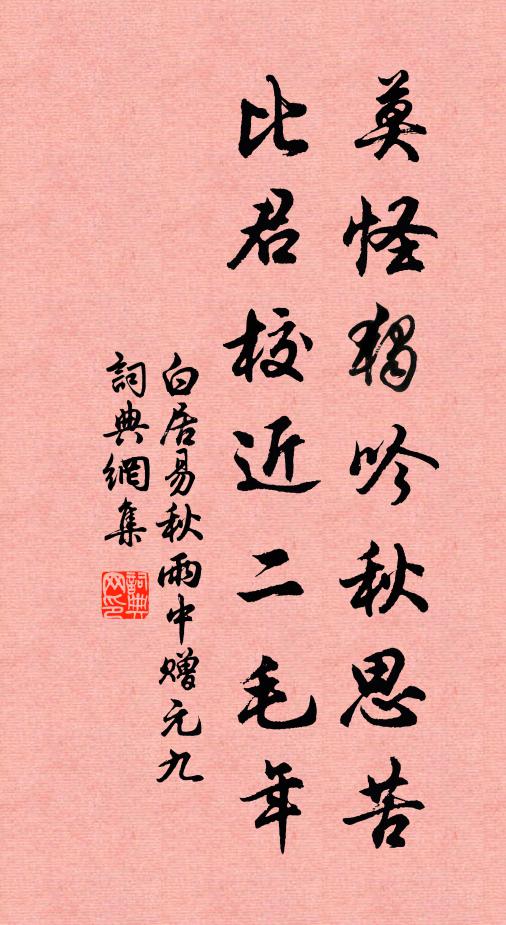 莫怪獨吟秋思苦
比君校近二毛年
白居易秋雨中贈元九
詞典網集
詞典网印